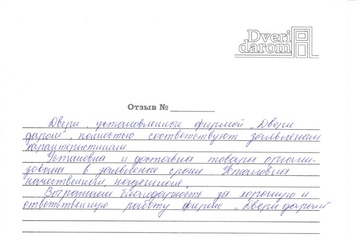 Dveri
darom
Отзыв №
Двери, установленные фирмой „Двери
даром", полностью соответствуют заявленным
характеристикам
Установка и доставка товара произве-
дены в заявленные сроки. Установка
качественная, надежная.
Выражаем благодарность за хорошую и
ответственную работу фирме „Двери даром"